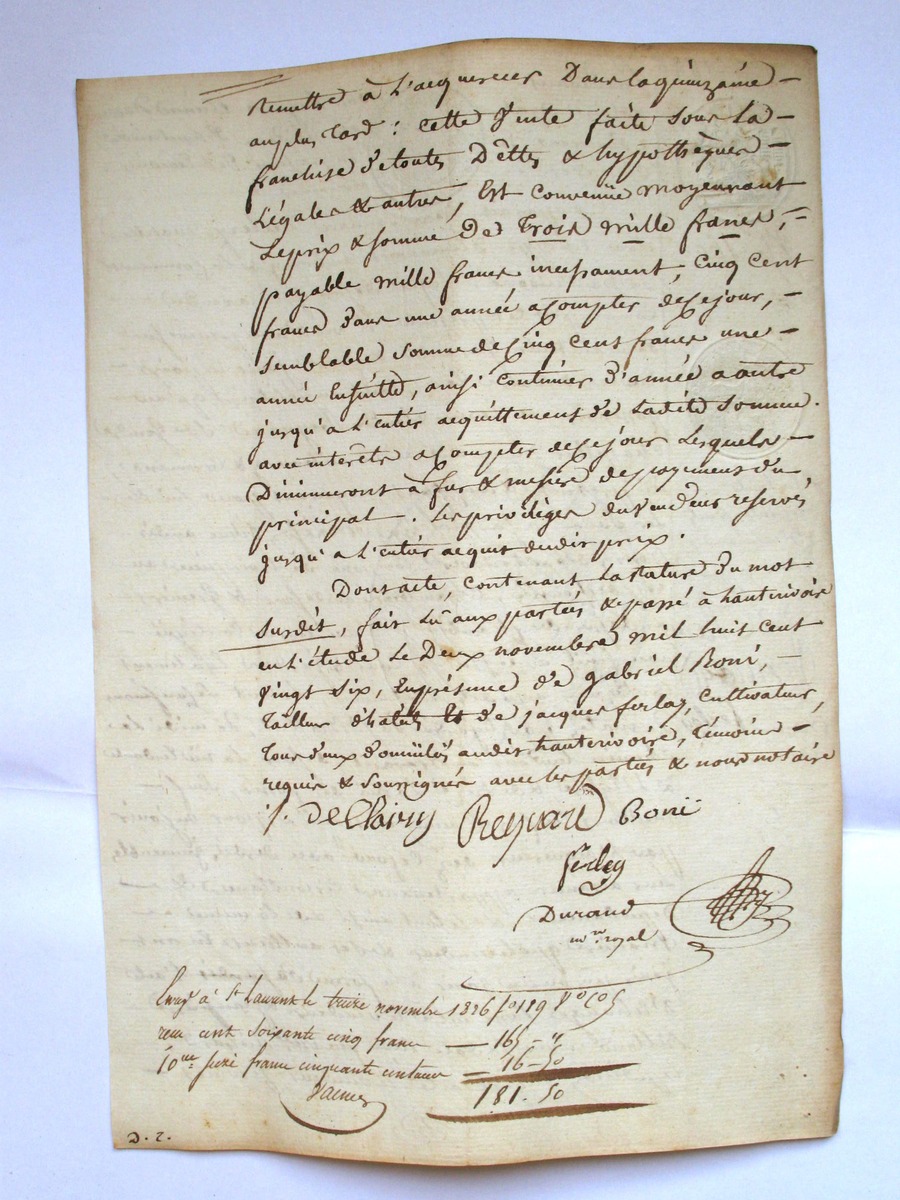 Remettre à L'acquereur Dans la quinzaine –
au plus Tard : cette Vente faite sous La –
franchise de toutes Dêttes & hypothèques –
Légales & autres, Est convenüe moyennant
Le prix & somme De Trois mille francs, –
payable mille francs incessament, Cinq Cent
francs dans une année a compter de ce jour, –
semblable somme de Cinq Cent francs une –
année Ensuitte, ainsi continuer d'année a autre
jusqu'a L'entier acquittement de Ladite somme.
avec intérêts a compter de ce jour Lesquels –
Diminueront à fur & mesure de payement du
principal. Les privilèges du Vendeur reservés
jusqu'a L'entier acquit dudit prix.
Dont acte, contenant La rature du mot
Surdit, fait Lû aux parties & passé à hauterivoire
en L'étude Le Deux novembre mil huit cent
Vingt Six, En présence de gabriel Boni, –
Tailleur d'habits Et de jacques ferlay, Cultivateur,
Tous deux domiciliés audit hauterivoire, Témoins –
requis & soussignés avec Les parties & nous notaire
Reynard Boni
ferley
Durand
nre royal
Enregé à St Laurent le treize novembre 1826 fo 119 Vo Co 5
reçu cent soixante cinq francs — 165 - "
10me seize francs cinquante centimes — 16 - 50
181 - 50
D. 2.